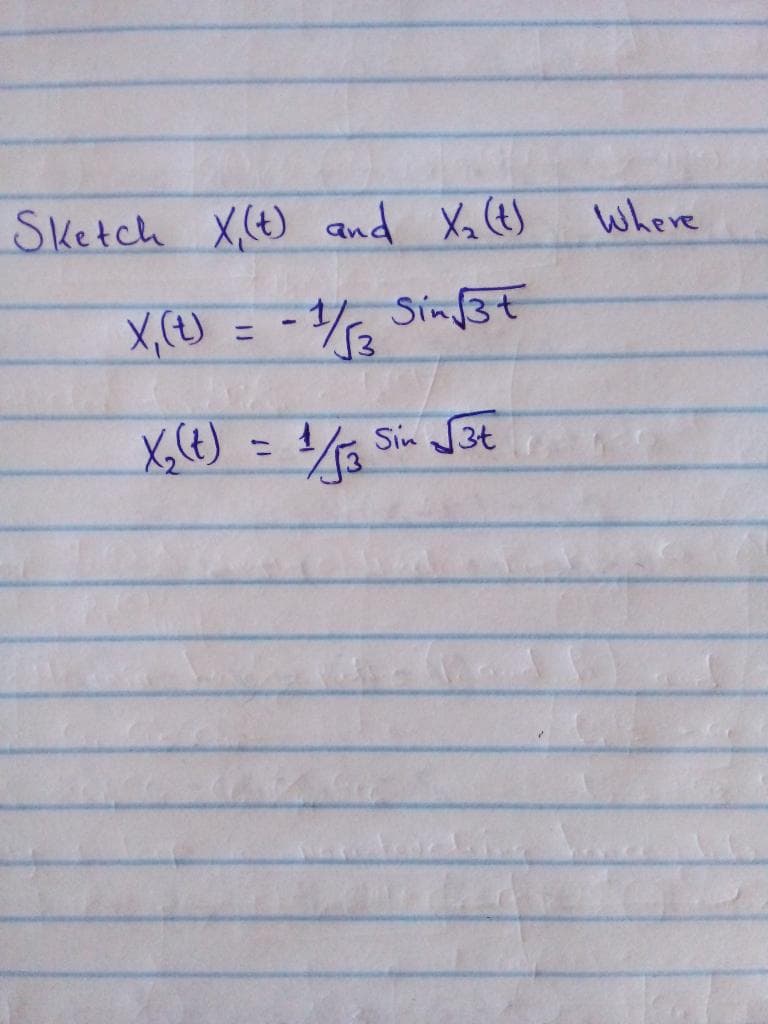 Sketch X₁(t) and X₂(t) Where
X₁(t) = - 1/√3 Sin√3t
X₂(t) = 1/√3 Sin √3t